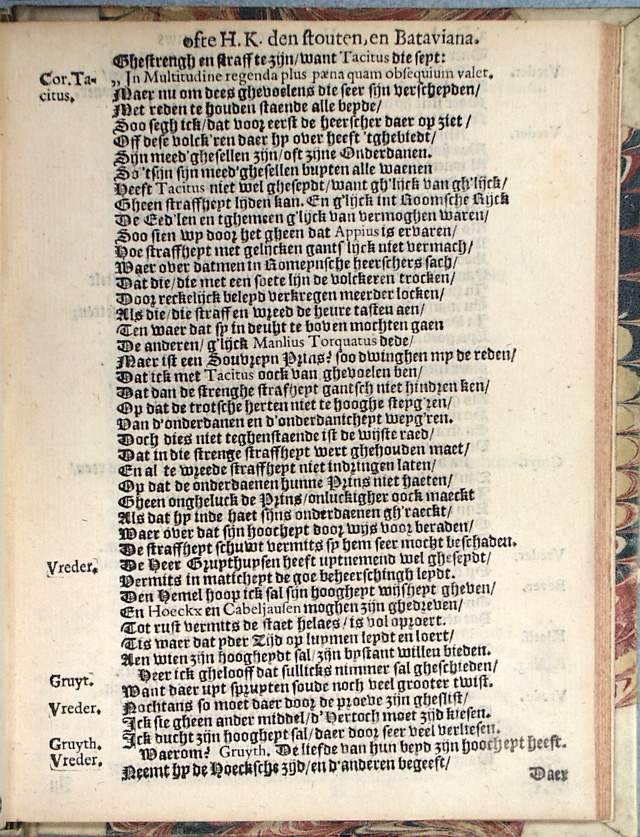 ofte H. K. den stouten, en Bataviana.
Ghestrengh en straff te zijn/ want Tacitus die sept:
Cor. Ta-
citus.
„ In Multitudine regenda plus pœna quam obsequium valet.
Maer nu om dees ghevoelens die seer sijn verscheyden/
Met reden te houden staende alle beyde/
Soo segh ick/ dat voor eerst de heerscher daer op ziet/
Off dese volck'ren daer hy over heeft 'tghebiedt/
Sijn meed'ghesellen zijn/ oft zijne Onderdanen.
So 'tsijn sijn meed'ghesellen buyten alle waenen
Heeft Tacitus niet wel gheseydt/ want gh'lijck van gh'lijck/
Gheen straffheyt lyden kan. En g'lijck int Roomsche Rijck
De Eed'len en tghemeen g'lijck van vermoghen waren/
Soo sien wy door het gheen dat Appius is ervaren/
Hoe straffheyt met gelijcken gants'lijck niet vermach/
Waer over datmen in Romeynsche heerschers sach/
Dat die/ die met een soete lijn de volckeren trocken/
Door reckelijck beleyd verkregen meerder locken/
Als die/ die straff en wreed de heure tasten aen/
Ten waer dat sy in deuht te boven mochten gaen
De anderen/ g'lijck Manlius Torquatus dede/
Maer ist een Souvreyn Prins? soo dwinghen my de reden/
Dat ick met Tacitus oock van ghevoelen ben/
Dat dan de strenghe strafheyt gantsch niet hindren ken/
Op dat de trotsche herten niet te hooghe steyg'ren/
Van d'onderdanen en d'onderdanicheyt weyg'ren.
Doch dies niet teghenstaende ist de wijste raed/
Dat in die strenge straffheyt wert ghehouden maet/
En al te wreede straffheyt niet indringen laten/
Op dat de onderdaenen hunne Prins niet haeten/
Gheen ongheluck de Prins/ onluckigher oock maeckt
Als dat hy inde haet sijns onderdaenen gh'raeckt/
Waer over dat sijn hoocheyt door wijs voor beraden/
De straffheyt schuwt vermits sy hem seer mocht beschaden.
Vreder.
De Heer Gruythuysen heeft uytnemend wel gheseydt/
Vermits in maticheyt de goe beheerschingh leydt.
Den Hemel hoop ick sal sijn hoogheyt wijsheyt gheven/
En Hoeckx en Cabeljausen moghen zijn ghedreven/
Tot rust vermits de staet helaes/ is vol oproert.
Tis waer dat yder Zijd op luymen leydt en loert/
Aen wien zijn hoogheydt sal/ zijn bystant willen bieden.
Gruyt.
Heer ick ghelooff dat sullicks nimmer sal gheschieden/
Want daer uyt spruyten soude noch veel grooter twist.
Vreder.
Nochtans so moet daer door de proeve zijn gheslist/
Ick sie gheen ander middel/ d'Hertoch moet zijd kiesen.
Gruyth.
Ick ducht zijn hoogheyt sal/ daer door seer veel verliesen.
Vreder.
Waerom? Gruyth. De liefde van hun beyd zijn hoocheyt heeft.
Neemt hy de Hoecksche zijd/ en d'anderen begeeft/
Daer